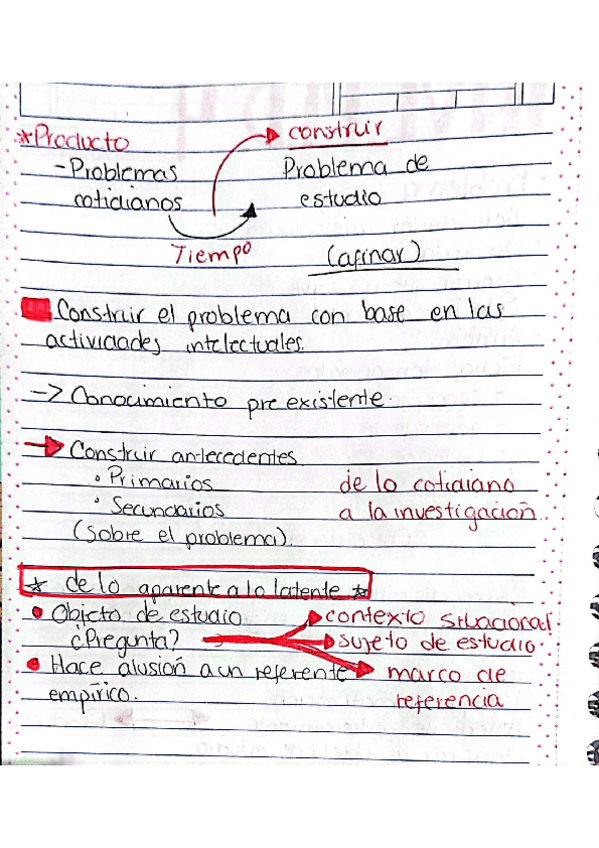 *Producto
construir
-Problemas
cotidianos
Problema de
estudio
Tiempo
(afinar)
Construir el problema con base en las
actividades intelectuales.
-> Conocimiento pre existente.
Construir antecedentes
• Primarios
• Secundarios
(sobre el problema).
de lo cotidiano
a la investigación
* de lo aparente a lo latente *
• Objeto de estudio
¿Pregunta?
contexto situacional
sujeto de estudio
marco de
referencia
• Hace alusión a un referente
empírico.